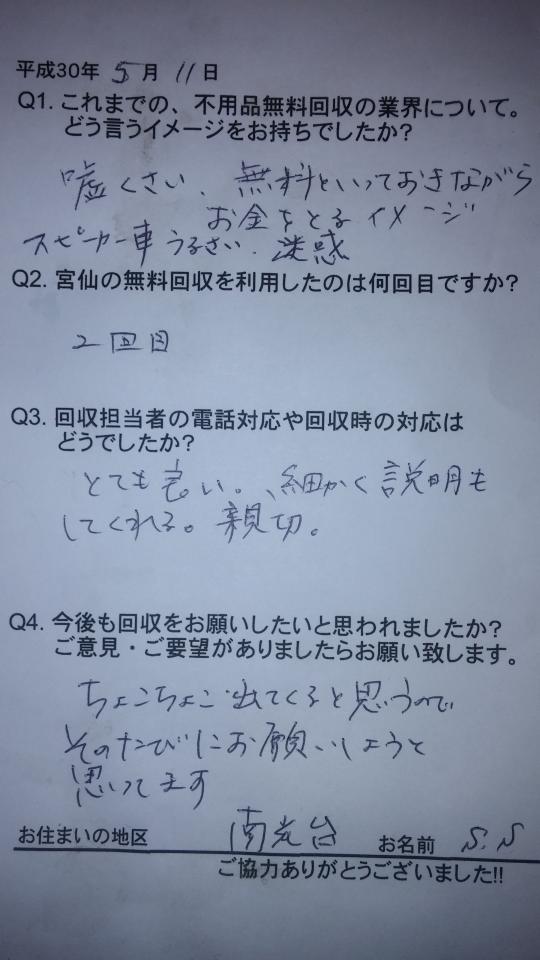 平成30年 5月 11日
Q1. これまでの、不用品無料回収の業界について。
どう言うイメージをお持ちでしたか?
嘘くさい、無料といっておきながら
お金をとるイメージ
スピーカー車うるさい、迷惑
Q2. 宮仙の無料回収を利用したのは何回目ですか?
2回目
Q3. 回収担当者の電話対応や回収時の対応は
どうでしたか?
とても良い。、細かく説明も
してくれる。親切。
Q4. 今後も回収をお願いしたいと思われましたか?
ご意見・ご要望がありましたらお願い致します。
ちょこちょこ出てくると思うので
そのたびにお願いしようと
思ってます
お住まいの地区 南光台 お名前 S.S
ご協力ありがとうございました!!